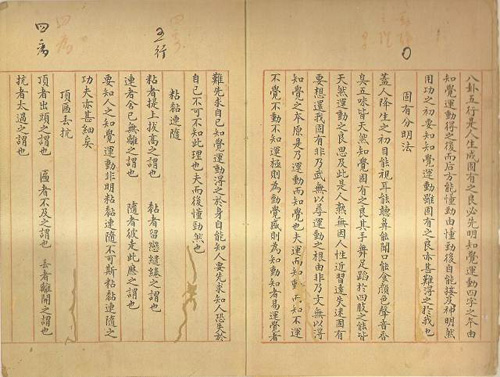 八卦五行是人生成固有之良必先明知覺運動四字之本由
知覺運動得之後而后方能懂勁由懂勁後自能接及神明然
用功之初要知知覺運動雖固有之良亦甚難得之於我也
固有分明法
蓋人降生之初目能視耳能聽鼻能聞口能食顏色聲音香
臭五味皆天然知覺固有之良其手舞足蹈於四肢之能皆
天然運動之良思及此是人孰無因人性近習遠失迷固有
要想還我固有非乃武無以尋運動之根由非乃文無以得
知覺之本原是乃運動而知覺也夫運而知動而知不運
不覺不動不知運極則為動覺盛則為知動知者易運覺者
難先求自己知覺運動得之於身自能知人要先求知人恐失於
自己不可不知此理也夫而後懂勁然也
五行
粘黏連隨
粘者提上拔高之謂也 黏者留戀繾綣之謂也
連者舍己無離之謂也 隨者彼走此應之謂也
要知人之知覺運動非明粘黏連隨不可斯粘黏連隨之
功夫亦甚細矣
四病
頂匾丟抗
頂者出頭之謂也 匾者不及之謂也 丟者離開之謂也
抗者太過之謂也